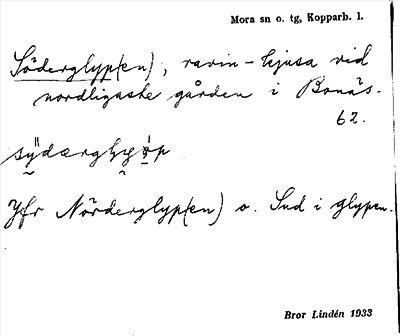 Mora sn o. tg, Kopparb. l.
Söderglyp(en), ravin-ljusa vid
nordligaste gården i Bonäs.
62.
Jfr Nörderglyp(en) o. Sud i glypen.
Bror Lindén 1933